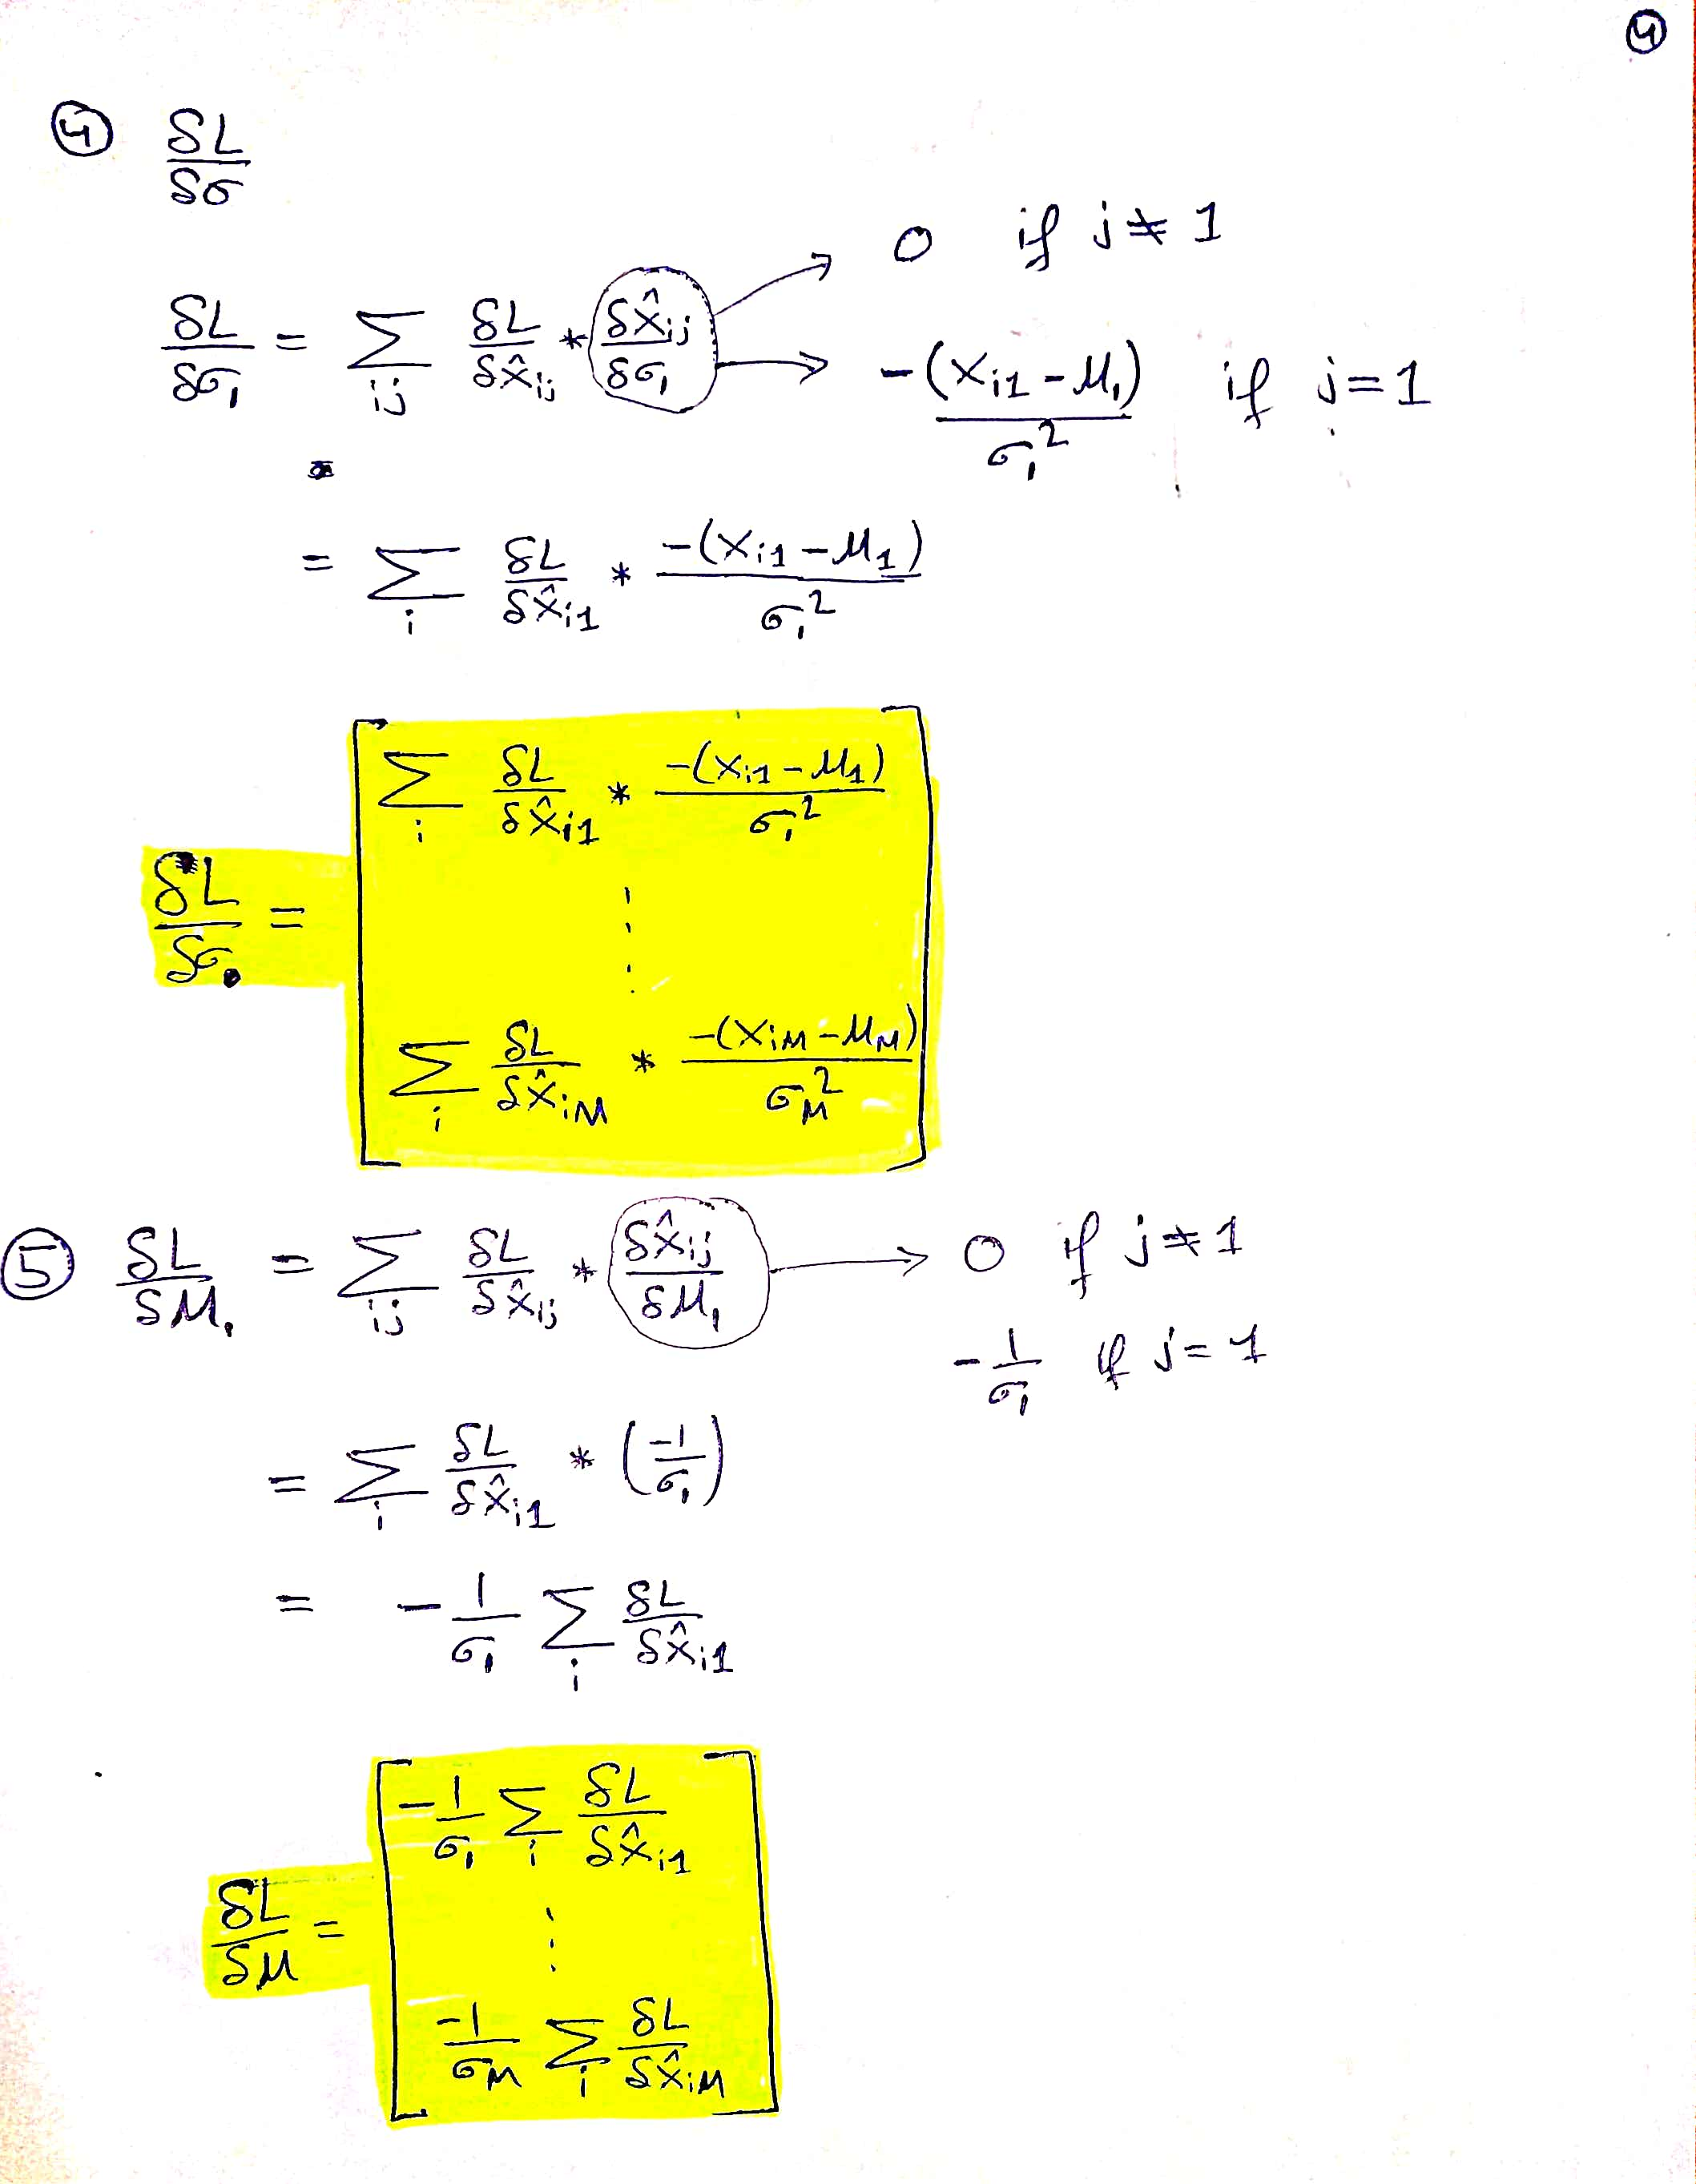 ④
④ δL/δσ
0 if j ≠ 1
δL/δσ₁ = Σ_ij δL/δx̂_ij * δx̂_ij/δσ₁ → -(x_i1 - μ₁)/σ₁² if j = 1
= Σ_i δL/δx̂_i1 * -(x_i1 - μ_1)/σ₁²
δL/δσ = [ Σ_i δL/δx̂_i1 * -(x_i1 - μ_1)/σ₁²
⋮
Σ_i δL/δx̂_iM * -(x_iM - μ_M)/σ_M² ]
⑤ δL/δμ₁ = Σ_ij δL/δx̂_ij * δx̂_ij/δμ₁ → 0 if j ≠ 1
-1/σ₁ if j = 1
= Σ_i δL/δx̂_i1 * (-1/σ₁)
= -1/σ₁ Σ_i δL/δx̂_i1
δL/δμ = [ -1/σ₁ Σ_i δL/δx̂_i1
⋮
-1/σ_M Σ_i δL/δx̂_iM ]